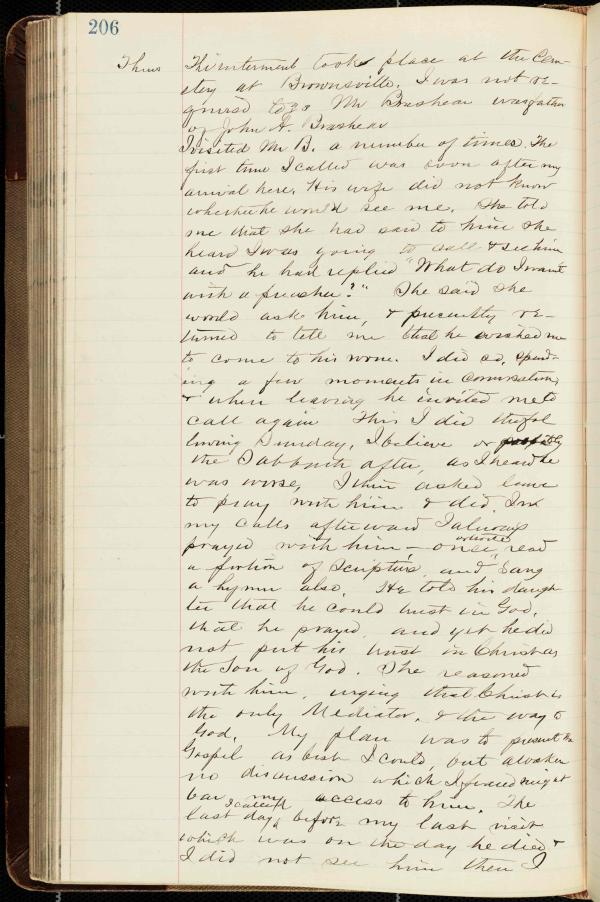 206
Thurs The interment took place at the Cem-
etery at Brownsville. I was not re-
quired to go Mr Brashear was father
of John A. Brashear
I visited Mr B. a number of times. The
first time I called was soon after my
arrival here. His wife did not know
whether he would see me. She told
me that she had said to him she
heard I was going to call & see him
and he had replied "What do I want
with a preacher?" She said she
would ask him, & presently re-
turned to tell me that he wished me
to come to his room. I did so, spend-
ing a few moments in conversation,
& when leaving he invited me to
call again This I did the fol
lowing Sunday, I believe or possibly
the Sabbath after, as I heard he
was worse, I then asked leave
to pray with him & did. In
my calls afterward I always
prayed with him — once, or twice read
a portion of Scripture and sang
a hymn also. He told his daugh-
ter that he could trust in God,
that he prayed, and yet he did
not put his trust in Christ as
the Son of God. She reasoned
with him, urging that Christ is
the only Mediator, & the way to
God. My plan was to present the
Gospel as best I could, but
no discussion which I feared might
bar my access to him. The
last day I called before my last visit
which was on the day he died &
I did not see him then I